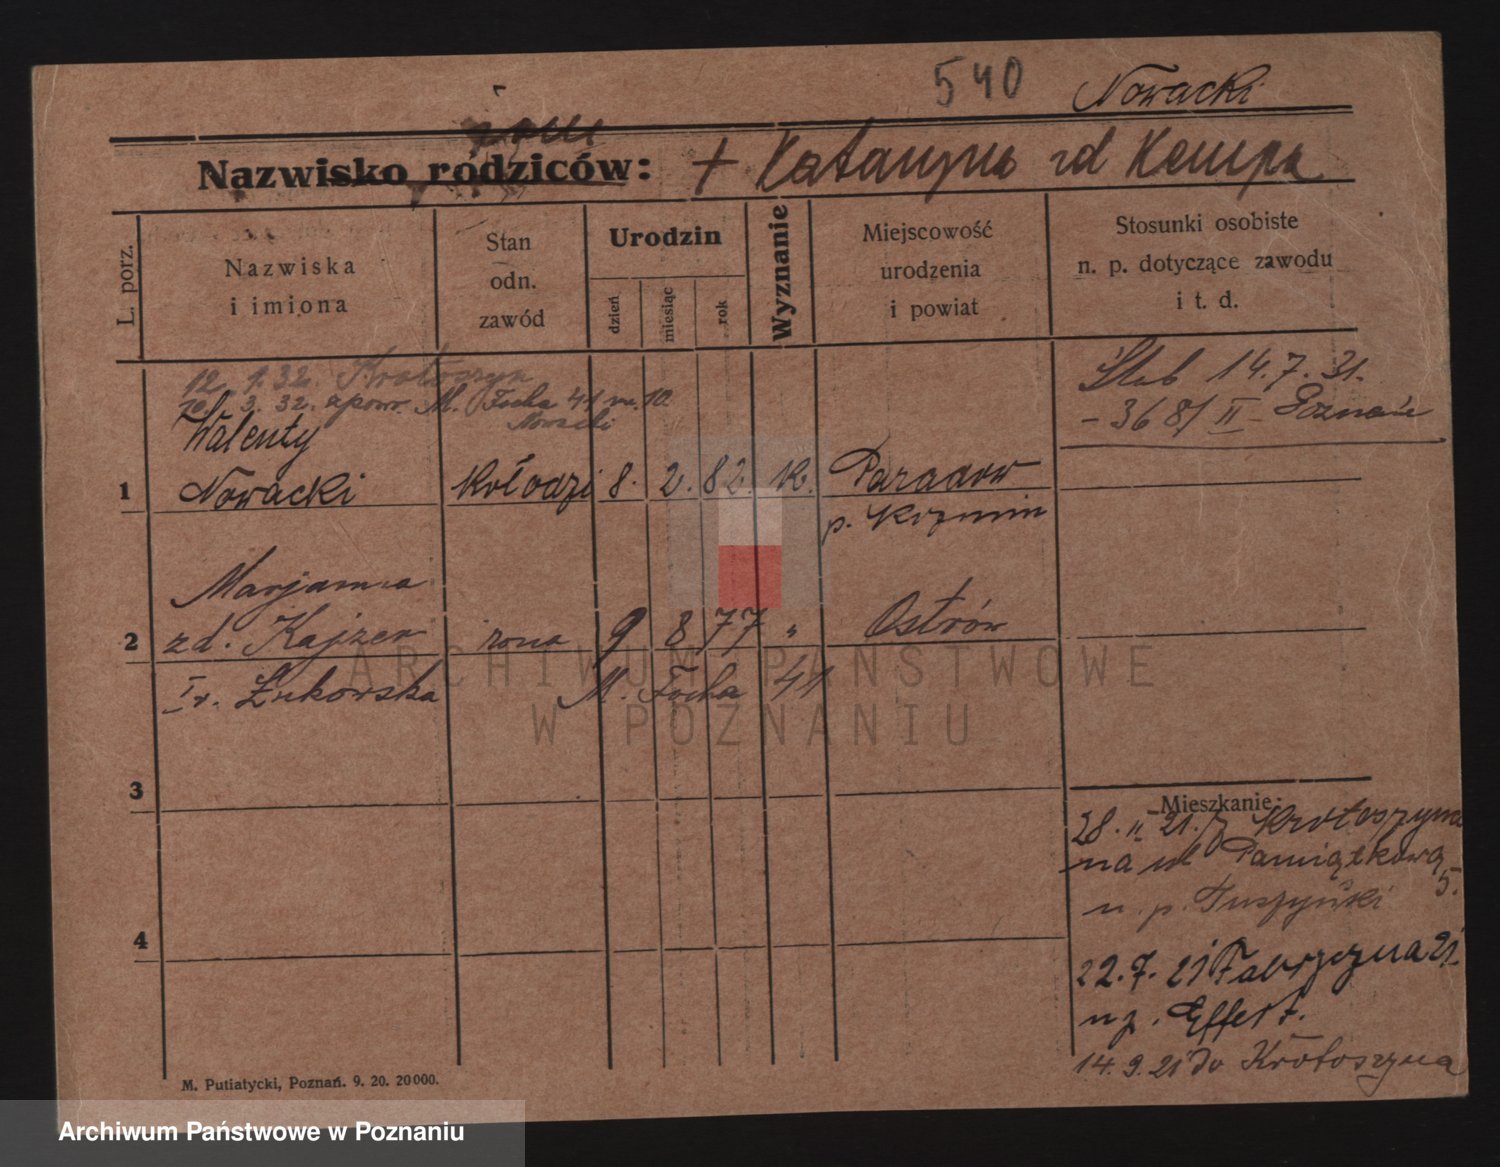 540 Nowacki
żony
Nazwisko rodziców: + Katarzyna zd Kempa
L. porz.
Nazwiska
i imiona
Stan
odn.
zawód
Urodzin
dzień
miesiąc
rok
Wyznanie
Miejscowość
urodzenia
i powiat
Stosunki osobiste
n. p. dotyczące zawodu
i t. d.
12. 1. 32. Krotoszyn
10. 3. 32. zpowr. M. Focha 41 m. 10
Nowacki
Ślub 14.7.31.
- 368/II Poznań
Walenty
1 Nowacki kołodzi 8. 2. 82 K. Paradow
p. Kozmin
Marjanna
2 zd. Kajzer żona 9 8 77 „ Ostrów
I v. Żukowska M. Focha 41
3
Mieszkanie:
28. II 21. z Krotoszyna
na ul Pamiątkową
5.
n. p. Tuszyński
4
22.7.21 Fabryczna 21.
n p. Effert.
14.9.21 do Krotoszyna
M. Putiatycki, Poznań. 9. 20. 20000.
ARCHIWUM PAŃSTWOWE
W POZNANIU
Archiwum Państwowe w Poznaniu